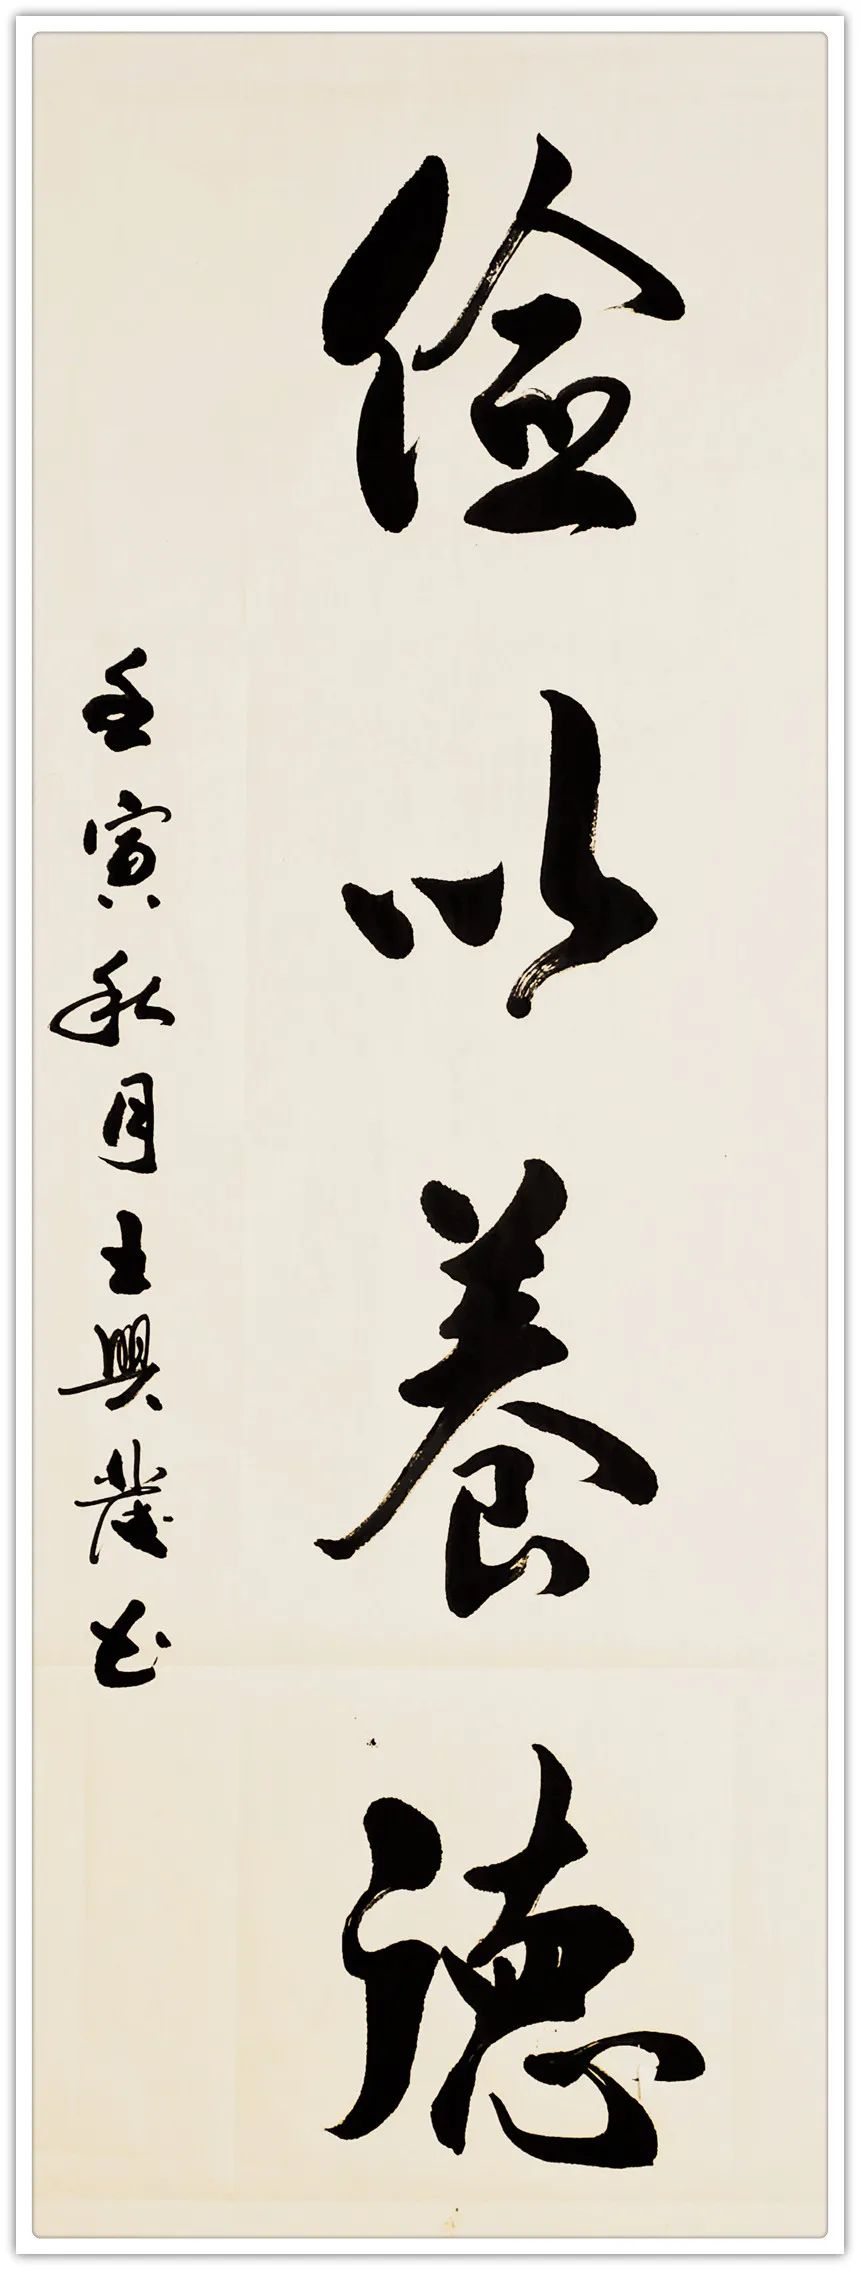 儉以養德
壬寅秋月王興業書